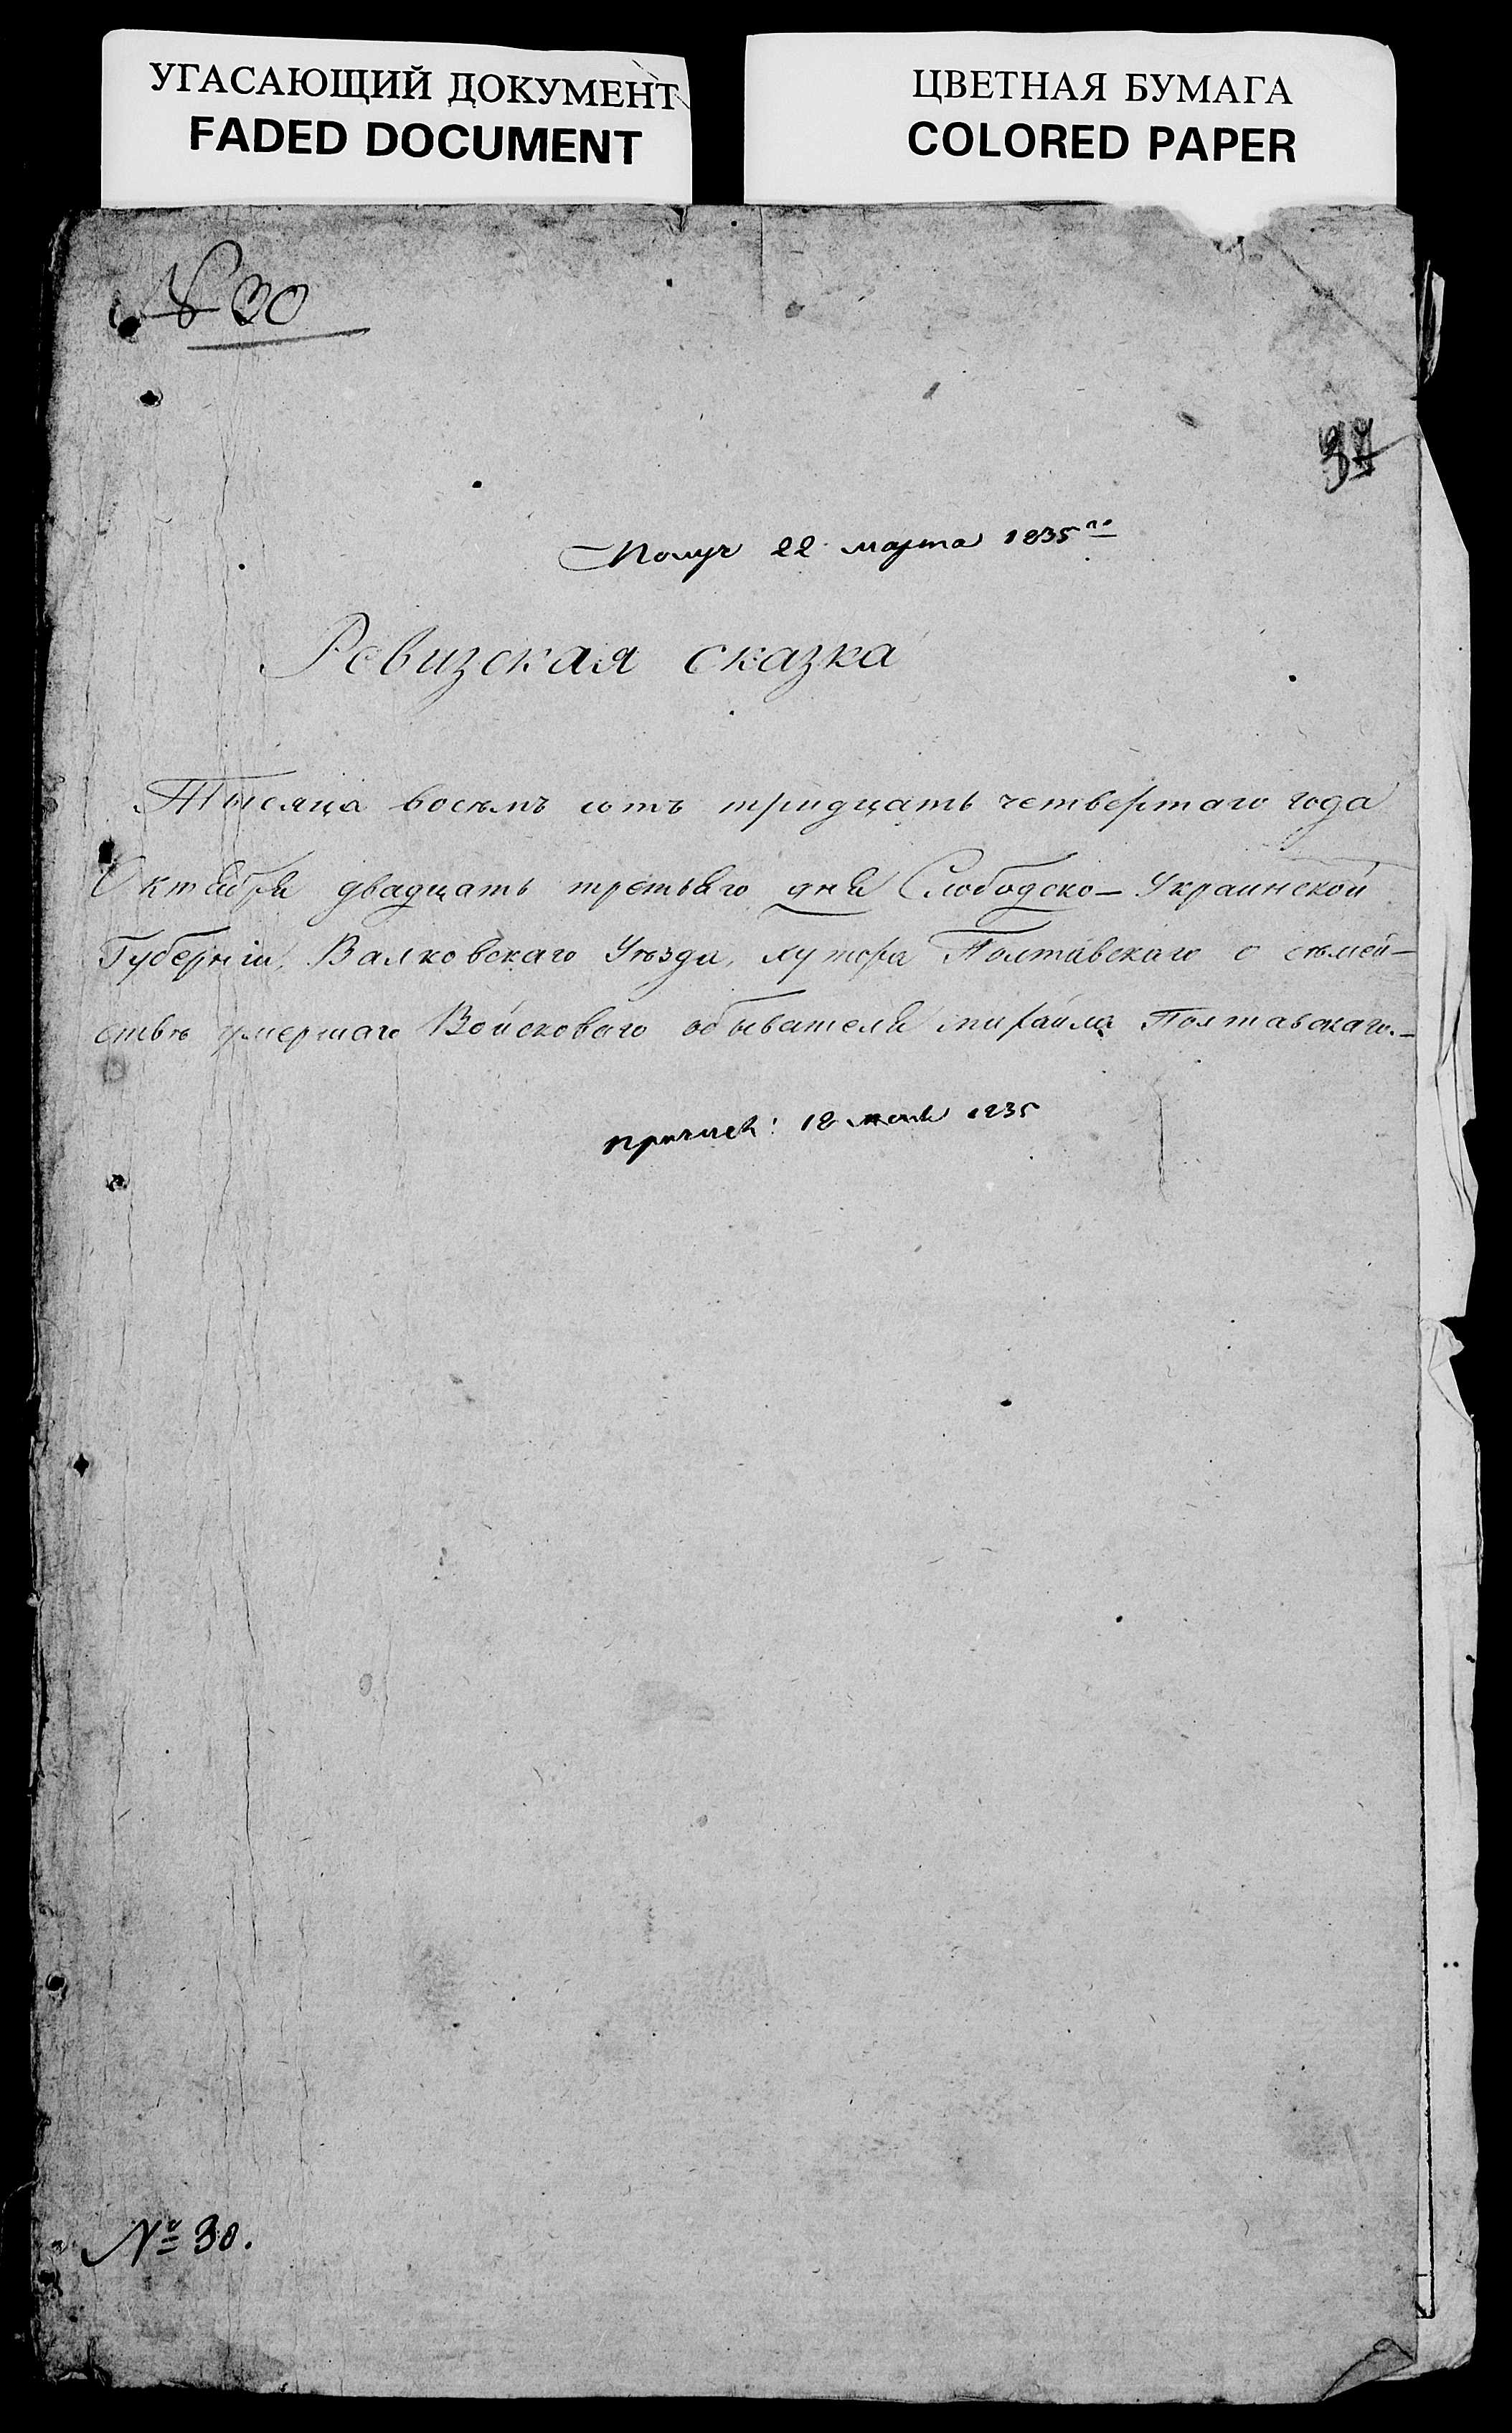 УГАСАЮЩИЙ ДОКУМЕНТ
FADED DOCUMENT
ЦВЕТНАЯ БУМАГА
COLORED PAPER
№ 30
37
Получ 22 марта 1835го
Ревизская сказка
Тысяца восемь сотъ тридцать четвертаго года
Октября двадцать третьяго дня Слободско-Украинской
Губерніи, Валковскаго Уѣзда, хутора Полтавскаго о сѣмей-
ствѣ умершаго Войсковаго обывателя михайла Полтавскаго.-
18 1835
№ 30.